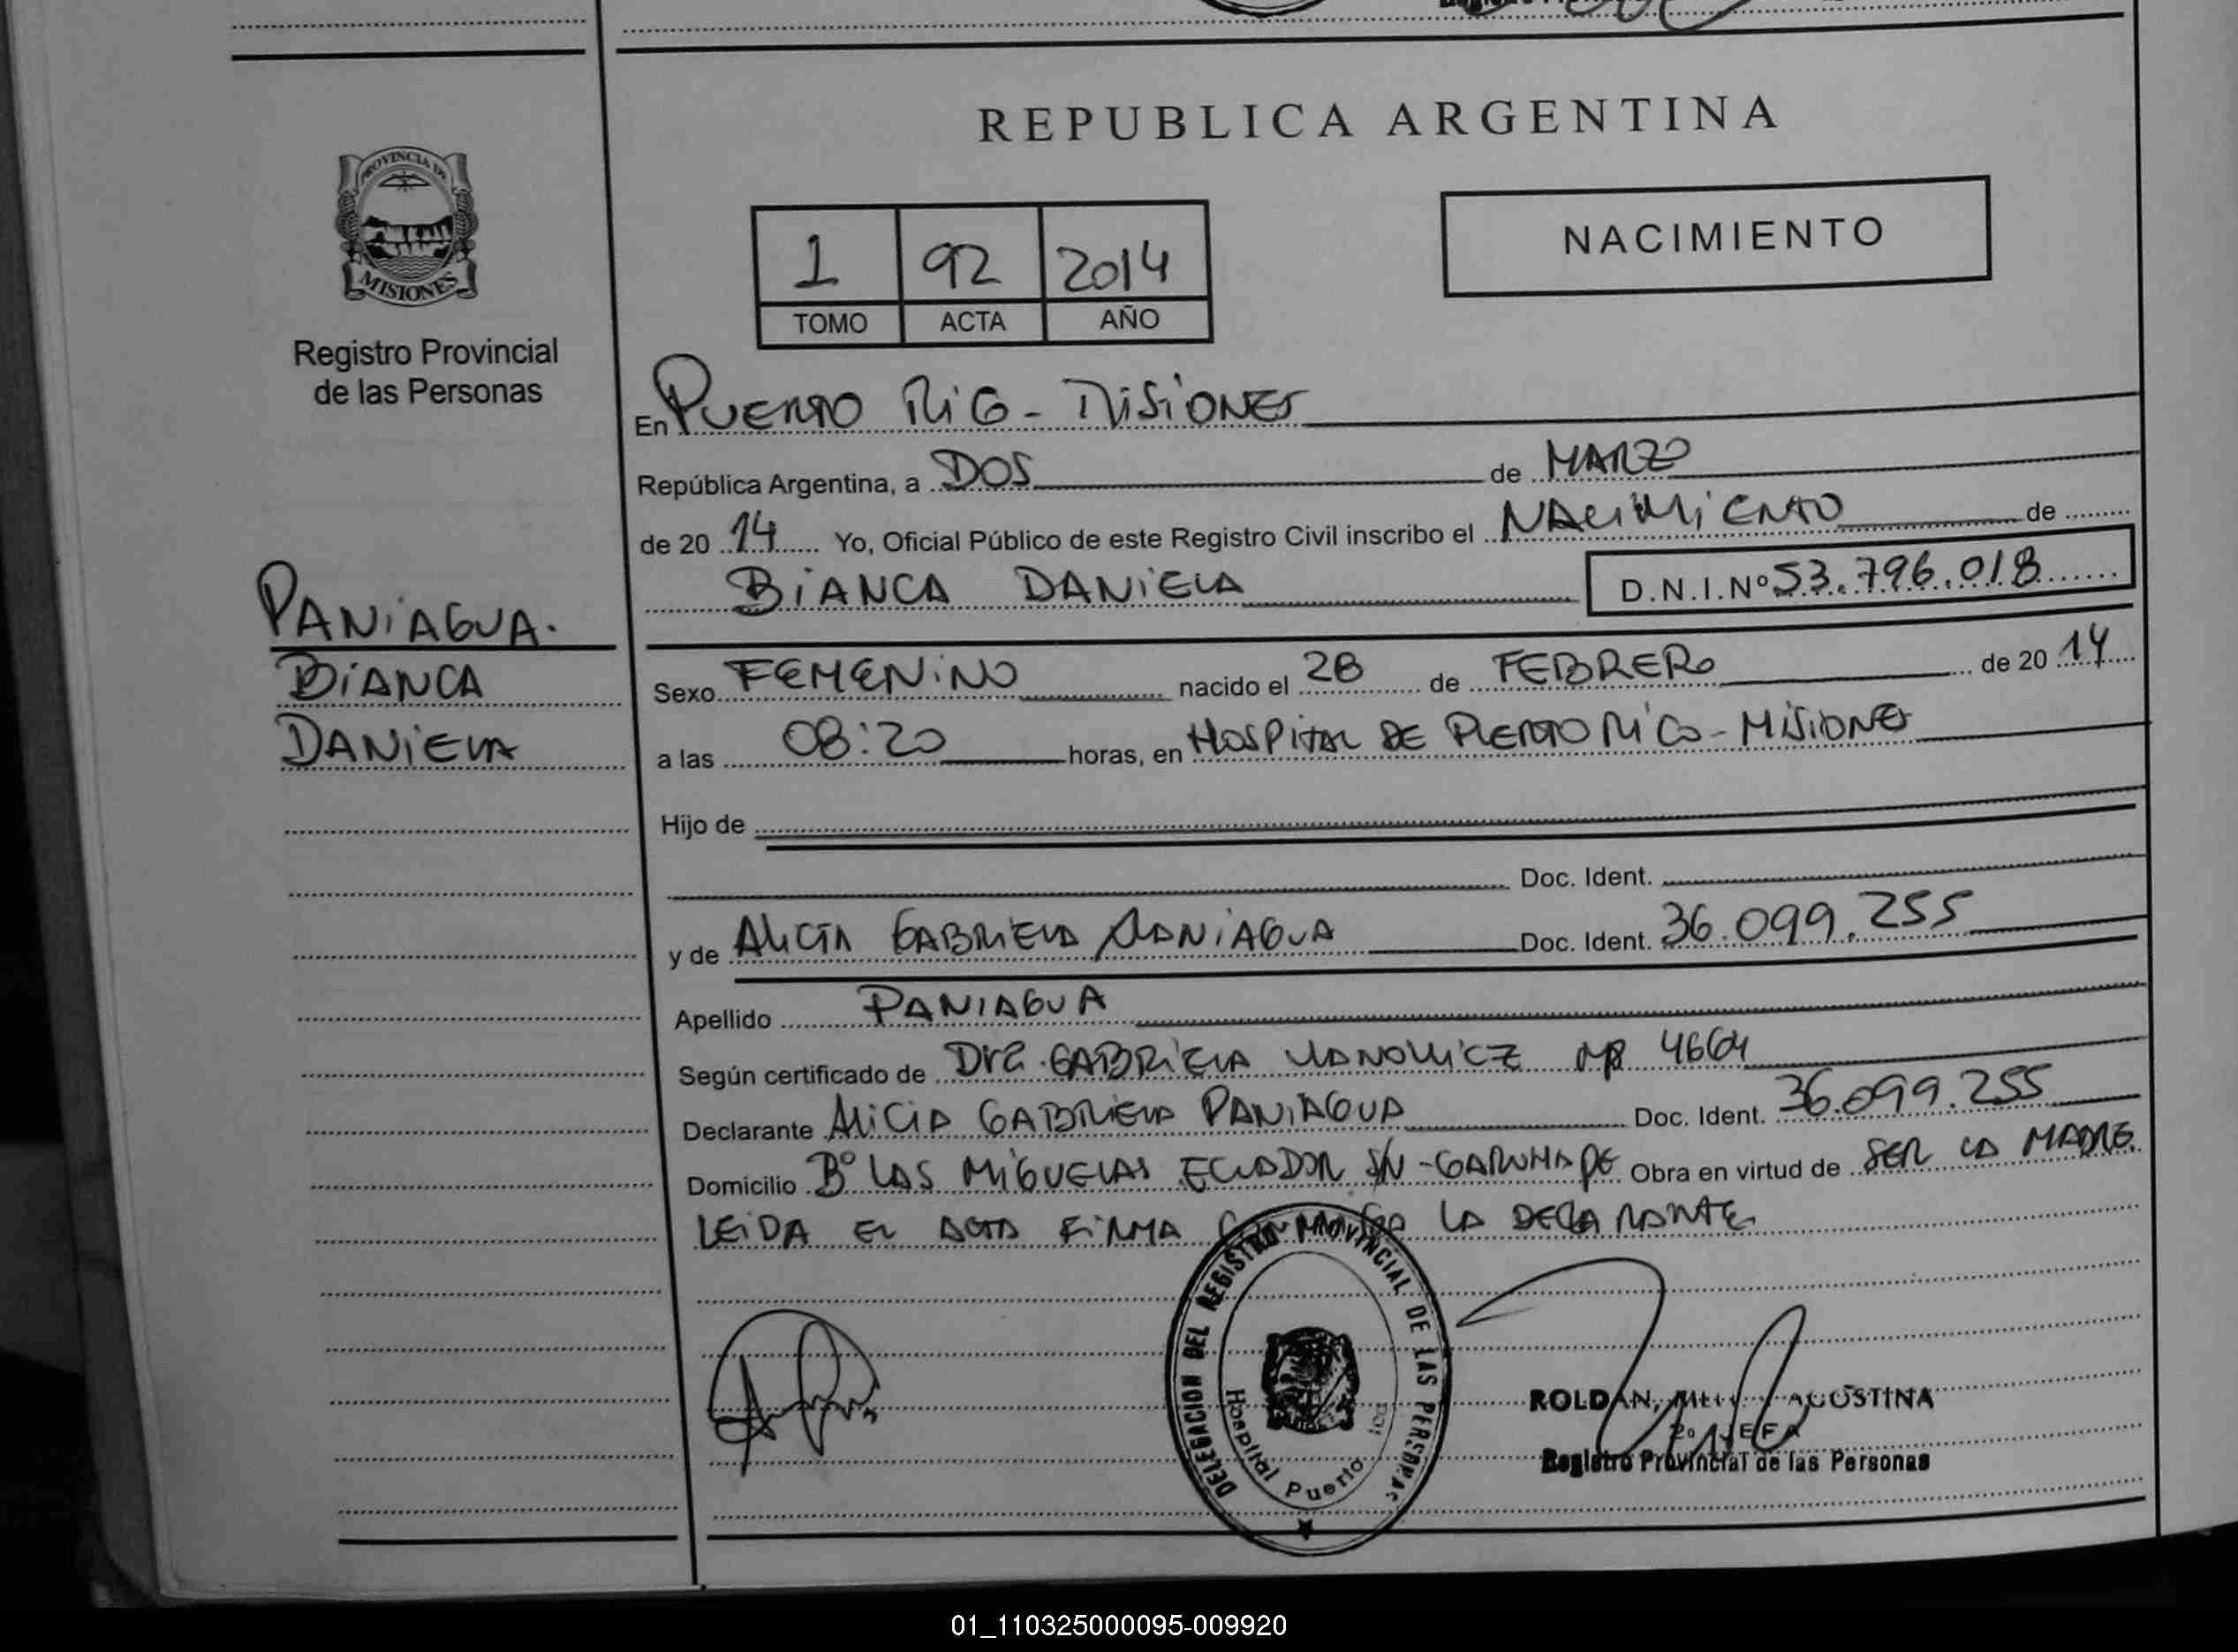 REPUBLICA ARGENTINA
PROVINCIA DE
MISIONES
Registro Provincial
de las Personas
1 92 2014
TOMO ACTA AÑO
NACIMIENTO
En PUERTO RICO - MISIONES
República Argentina, a DOS de MARZO
de 20 14 Yo, Oficial Público de este Registro Civil inscribo el NACIMIENTO de
BIANCA DANIELA D.N.I.Nº 53.796.018
PANIAGUA.
BIANCA
DANIELA
Sexo FEMENINO nacido el 28 de FEBRERO de 20 14
a las 08:20 horas, en HOSPITAL DE PUERTO RICO - MISIONES
Hijo de
Doc. Ident.
y de ALICIA GABRIELA PANIAGUA Doc. Ident. 36.099.255
Apellido PANIAGUA
Según certificado de Dra. GABRIELA MP 4664
Declarante ALICIA GABRIELA PANIAGUA Doc. Ident. 36.099.255
Domicilio Bº LAS MIGUELAS ECUADOR S/N - GARUHAPE Obra en virtud de SER LA MADRE.
LEIDA EL ACTA FIRMA CONMIGO LA DECLARANTE
DELEGACION DEL REGISTRO PROVINCIAL DE LAS PERSONAS
Hospital Puerto
ROLDAN, AGOSTINA
2º JEFA
Registro Provincial de las Personas
01_110325000095-009920